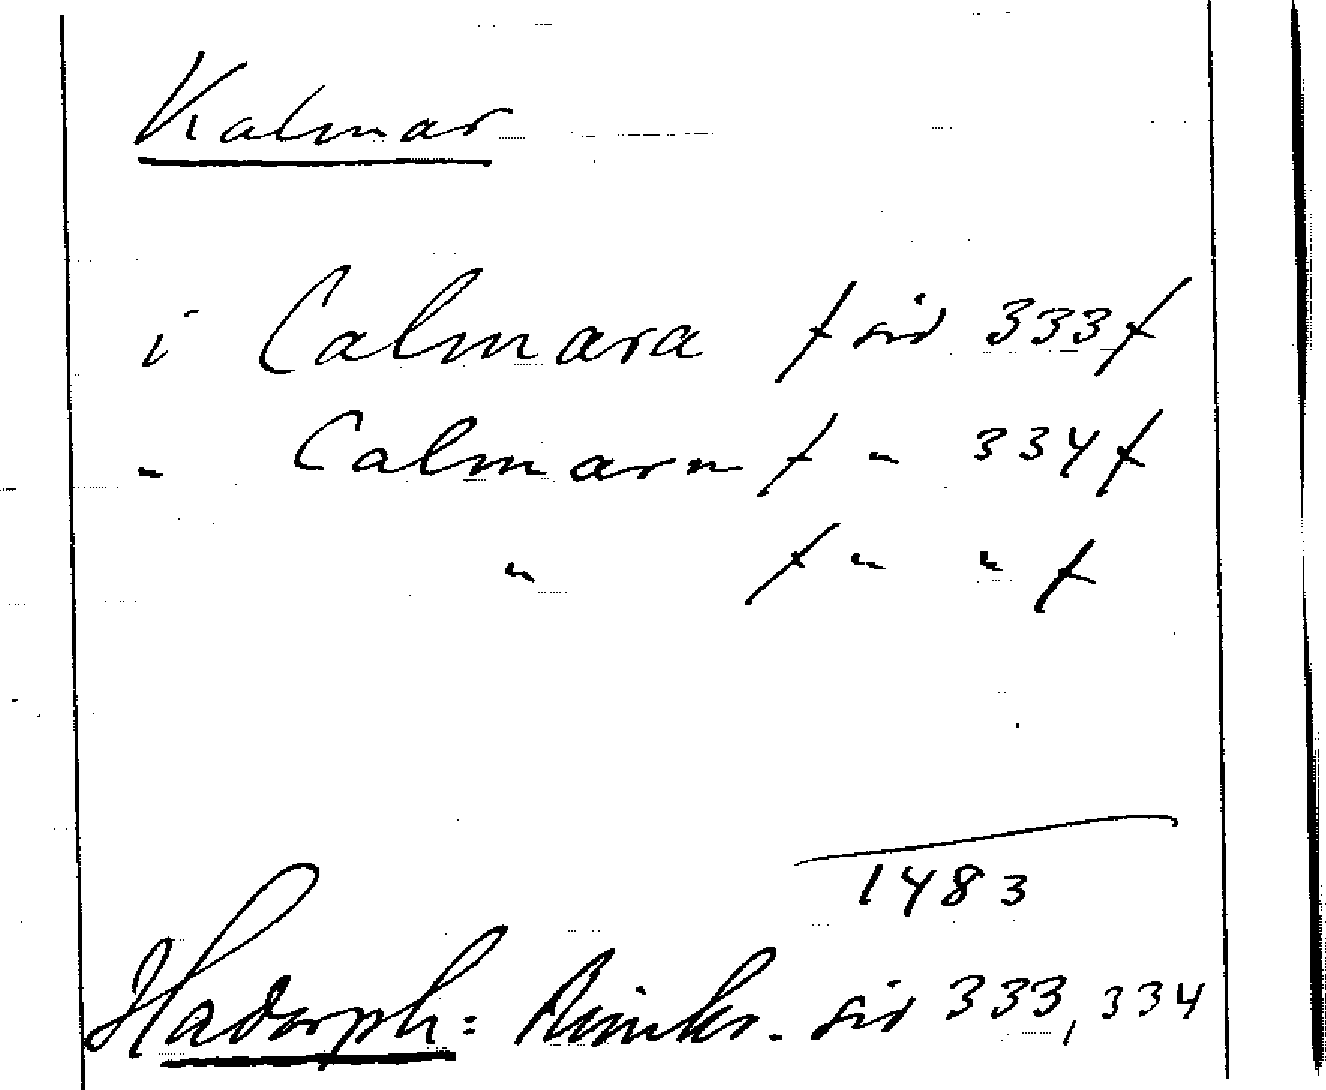 Kalmar
i Calmara / sid 333 /
" Calmarn / " 334 /
" / " " /
1483
Hadorph: Rimkr. sid 333, 334